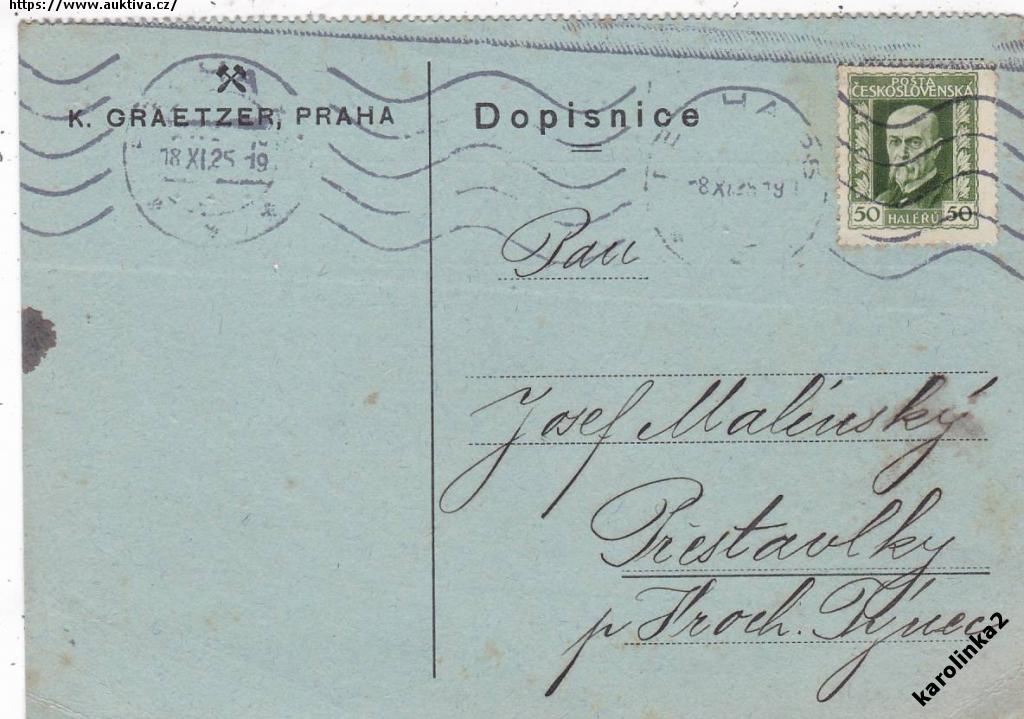 https://www.auktiva.cz/
K. GRAETZER, PRAHA
18 XI. 25 - 19
Dopisnice
18 XI. 25 - 19
POŠTA
ČESKOSLOVENSKÁ
50 HALÉŘŮ 50
Pan
Josef Malínský
Přestavlky
p Hroch. Týnec
karolinka2